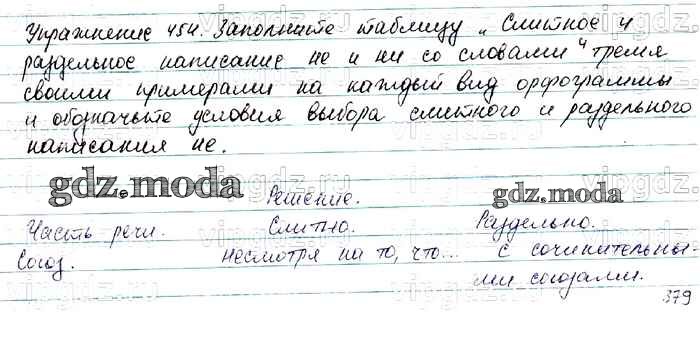 Упражнение 454. Заполните таблицу „Слитное и
раздельное написание не и ни со словами" тремя
своими примерами на каждый вид орфограммы
и обозначьте условия выбора слитного и раздельного
написания не.
gdz.moda Решение. gdz.moda
Часть речи. Слитно. Раздельно.
Союз. несмотря на то, что... с сочинительны-
ми союзами.
379